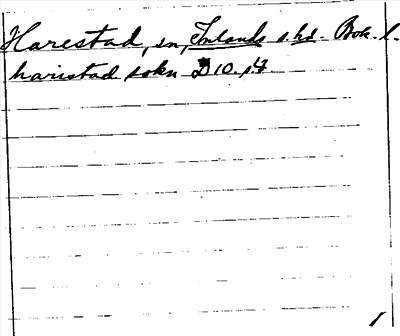 Harestad, sn, Inlands s. hd. Boh. l.
haristad sokn D 10. s. 4.
1